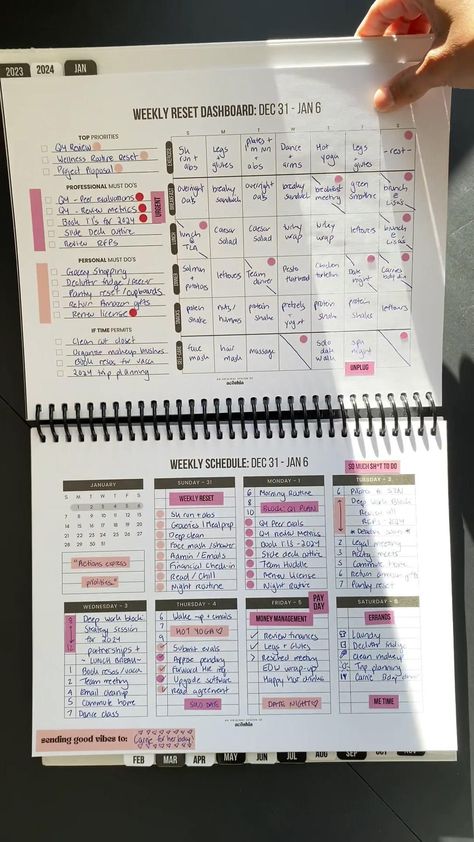 2023 2024 JAN
WEEKLY RESET DASHBOARD: DEC 31 - JAN 6
TOP PRIORITIES
Q4 Review
Wellness Routine Reset
Project Proposal
PROFESSIONAL MUST DO'S
Q4 - Peer evaluations
Q4 - Review metrics
Book TTs for 2024
Slide Deck outline
Review RFPS
URGENT
PERSONAL MUST DO'S
Grocery Shopping
Declutter fridge /
Pantry reset / cupboards
Return Amazon gifts
Renew license
IF TIME PERMITS
Clean out closet
Organize makeup brushes
Book resos for vaca
2024 trip planning
S M T W T F S
EXERCISE
5k run + abs
Legs + glutes
pilates + 1m run + abs
Dance + arms
Hot yoga
legs + glutes
- rest -
BREAKFAST
overnight oats
breaky sandwich
overnight oats
breaky sandwich
breakfast meeting
green smoothie
brunch @ Lisa's
LUNCH
lunch @
Caesar salad
Caesar salad
wrap
wrap
leftovers
brunch @ Lisa's
DINNER
Salmon + potatoes
leftovers
Team dinner
Pesto
Chicken
Date night
Carries bday din
SNACKS
protein shake
nuts / hummus
protein shake
pretzels + yogurt
protein shake
protein shake
leftovers
SELF-CARE
face mask
hair mask
massage
solo date walk
spa night
UNPLUG
AN ORIGINAL DESIGN OF
WEEKLY SCHEDULE: DEC 31 - JAN 6
SO MUCH SH*T TO DO
JANUARY
S M T W T F S
1 2 3 4 5 6
7 8 9 10 11 12 13
14 15 16 17 18 19 20
21 22 23 24 25 26 27
28 29 30 31
"Actions express
priorities"
SUNDAY - 31
WEEKLY RESET
5k run + abs
Groceries / Meal prep
Deep clean
Face mask / shower
Admin / Emails
Financial Check-in
Read / Chill
Night routine
MONDAY - 1
6 Morning Routine
8 BLOCK: Q1 PLAN
10
Q4 Peer evals
Q4 review metrics
Book TTs - 2024
Slide deck outline
Team Huddle
Renew License
Night Routine
TUESDAY - 2
6 Pilates +
Deep Work Block
Review all
RFPS - 2024
1 Legal meeting
3
5 Commute home
6 Return Amazon gifts
7 Pantry reset
WEDNESDAY - 3
Deep work block
Strategy session
for 2024
partnerships +
~ LUNCH BREAK ~
1 Book resos / vaca
2 Team meeting
4 Email cleanup
5 Commute home
7 Dance class
THURSDAY - 4
6 Wake up + emails
7 HOT YOGA
9
Submit evals
Approve pending
Forward the
Upgrade software
Read agreement
SOLO DATE
FRIDAY - 5
PAY DAY
MONEY MANAGEMENT
Review finances
Legs + Glutes
Resched meeting
EOW wrap-up
Happy hour drinks
DATE NIGHT
SATURDAY - 6
ERRANDS
Laundry
Declutter fridge
Clean makeup
Trip planning
Carrie Bday dinner
ME TIME
AN ORIGINAL DESIGN OF
sending good vibes to: Carrie for her bday!
FEB MAR APR MAY JUN JUL AUG SEP OCT NOV